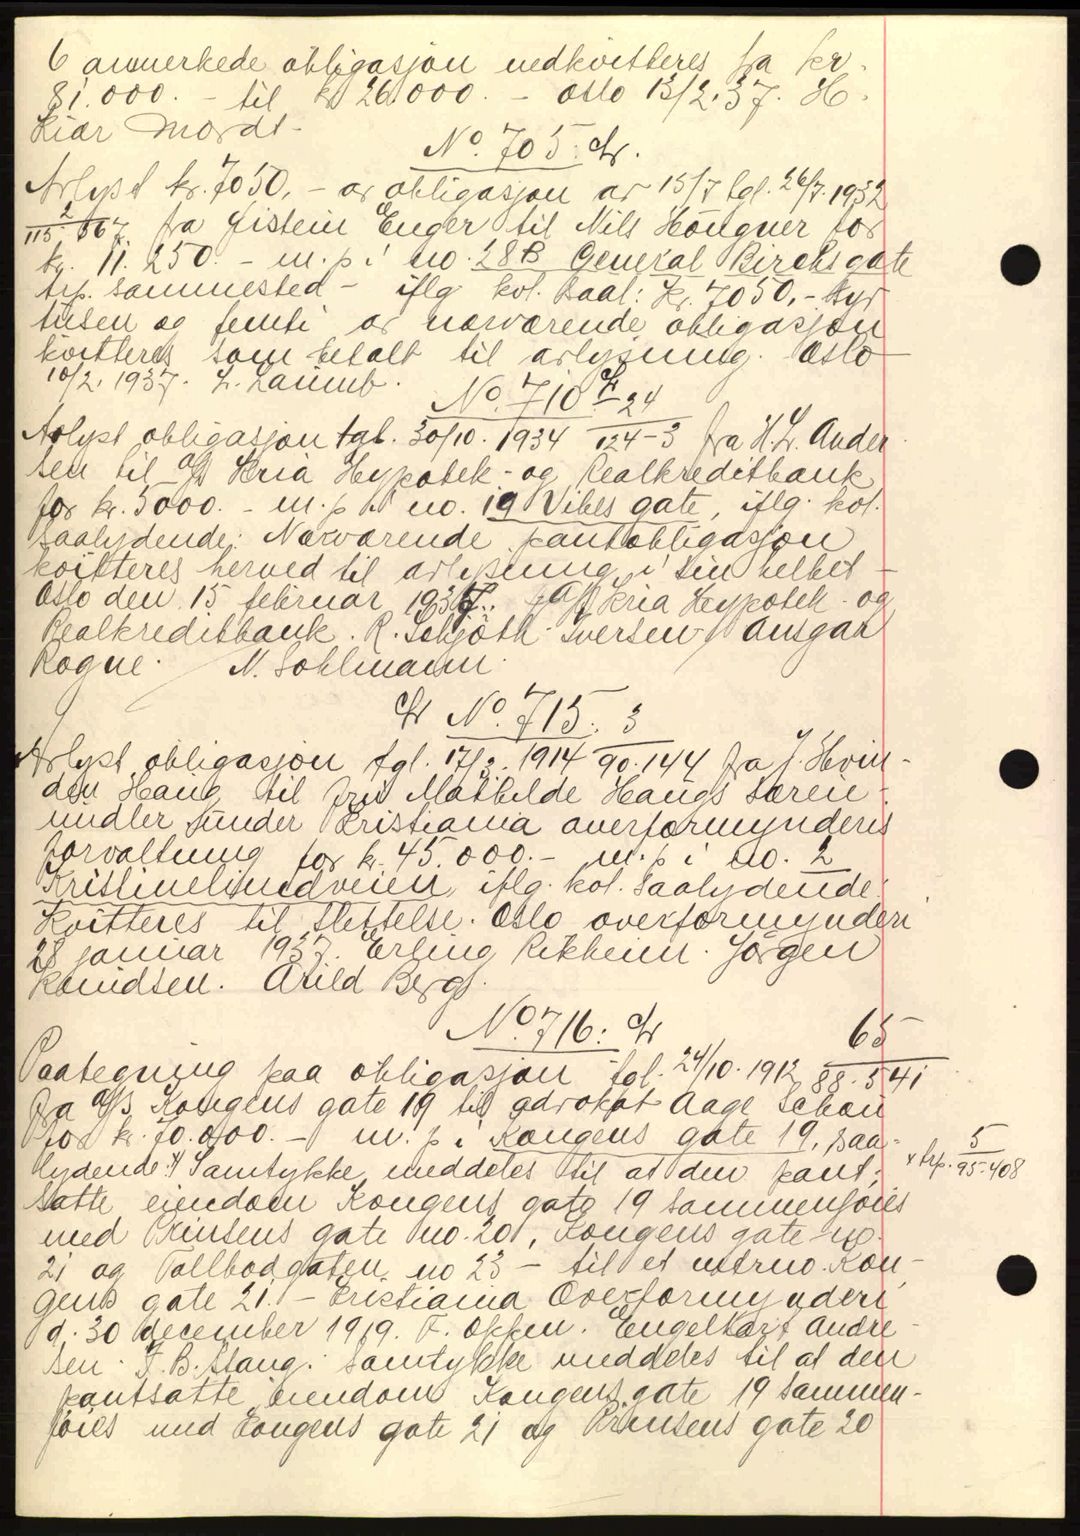 6 anmerkede obligasjon nedkvitteres fra kr.
81.000. - til kr 26.000. - Oslo 13/2.37. H.
Kiær Mordt -
No. 705.
Avlyst kr. 7050, - av obligasjon av 15/7 tgl. 26/7. 1932
2/115-667 fra Øistein Enger til Nils Hougner for
kr. 11.250. - m.p i no. 28B General Birchsgate
trp. sammested - iflg kol. saal: Kr. 7050,- syv
tusen og femti av nærværende obligasjon
kvitteres som betalt til avlysning. Oslo
10/2. 1937. L. Laumb.
No. 710 24
Avlyst obligasjon tgl. 30/10. 1934 124-3 fra H.L. Ander
sen til A/S Kria Hypotek- og Realkreditbank
for kr. 5000. - m.p i no. 19 Vibes gate, iflg. kol.
saalydende: Nærværende pantobligasjon
kvitteres herved til avlysning i sin helhet -
Oslo den 15 februar 1937. A/S Kria Hypotek- og
Realkreditbank. R. Schjøth Iversen / Ansgar
Rogne. N. Sohlmann.
No. 715. 3
Avlyst obligasjon tgl. 17/3. 1914 90.144 fra J. Hvin-
den Haug til fru Mathilde Haugs særen-
midler under Kristiania overformynderis
forvaltning for kr. 45.000.- m.p i no. 2
Kristinelundveien, iflg. kol. saalydende:
Kvitteres til slettelse. Oslo overformynderi
28 januar 1937. Erling Rikheim. Jörgen
Knudsen. Arild Berg.
No. 716: 65
Paategning paa obligasjon tgl. 24/10. 1912 88.541
fra A/S Kongens gate 19 til advokat Aage Schou
for kr. 70.000. - m.p i Kongens gate 19, saa-
lydende: x) Samtykke meddeles til at den pant-
x trp. 5/95-408
satte eiendom Kongens gate 19 sammenføies
med Prinsens gate no. 20, Kongens gate no.
21 og Tollbodgaten no 23 - til et matrno. Kon-
gens gate 21. - Kristiania Overformynderi
d. 30 december 1919. F. Oppen. Engelhart Andre-
sen. F.B. Stang. Samtykke meddeles til at den
pantsatte eiendom Kongens gate 19 sammen-
føies med Kongens gate 21 og Prinsens gate 20